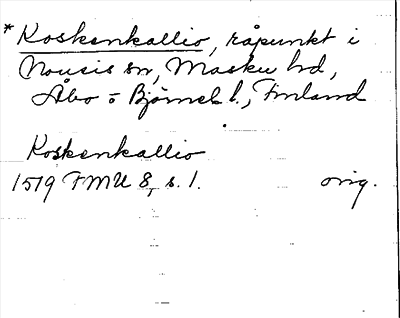 * Koskenkallio, råpunkt i
Nousis sn, Masku hd,
Åbo o Björneb. l., Finland
Koskenkallio
1519 FMU 8, s. 1. orig.